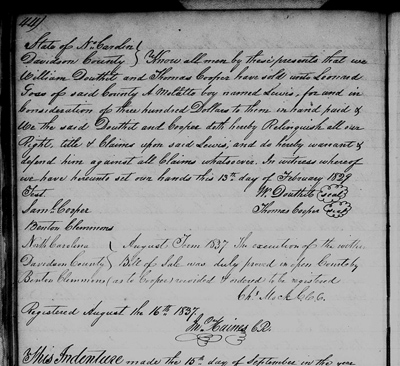 441
State of No Carolina
Davidson County } Know all men by these presents that we
William Douthit and Thomas Cooper have sold unto Leonard
Goss of said County A Molatto boy named Lewis, for and in
Consideration of three hundred Dollars to them in hand paid &
We the said Douthit and Cooper doth hereby Relinquish all our
Right, title & Claims upon said Lewis, and do hereby warrant &
defend him against all Claims whatsoever. In witness whereof
we have hereunto set our hands this 13th day of February 1829
Test Wm Douthit (Seal)
Saml. Cooper Thomas Cooper (Seal)
Benton Clemmons
North Carolina } August Term 1837 The execution of the within
Davidson County } Bill of Sale was duly proved in open Court by
Benton Clemmons (as to Cooper) recorded & ordered to be registered
Ch. Mock C.C.C.
Registered August the 16th 1837.
Jn. Haines P.R.
This Indenture made the 15th day of September in the year